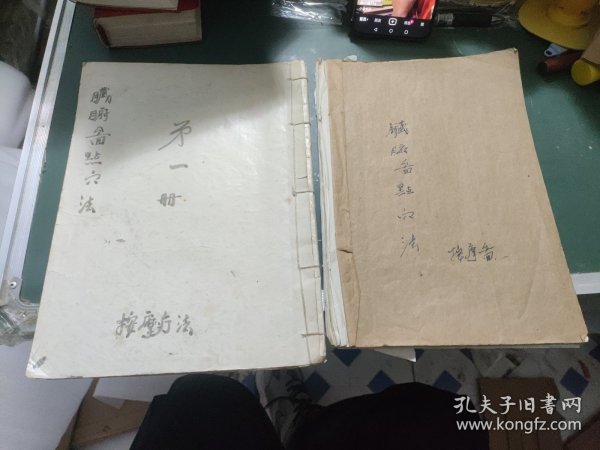 臟腑畨點穴法
第一册
按摩疗法
臟腑畨點穴法
按摩畨
孔夫子旧书网
www.kongfz.com